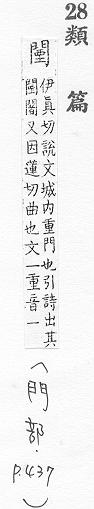 28類篇
闉
伊真切說文城内重門也引詩出其
闉闍又因蓮切曲也文一重音一
(門部.
P.437)